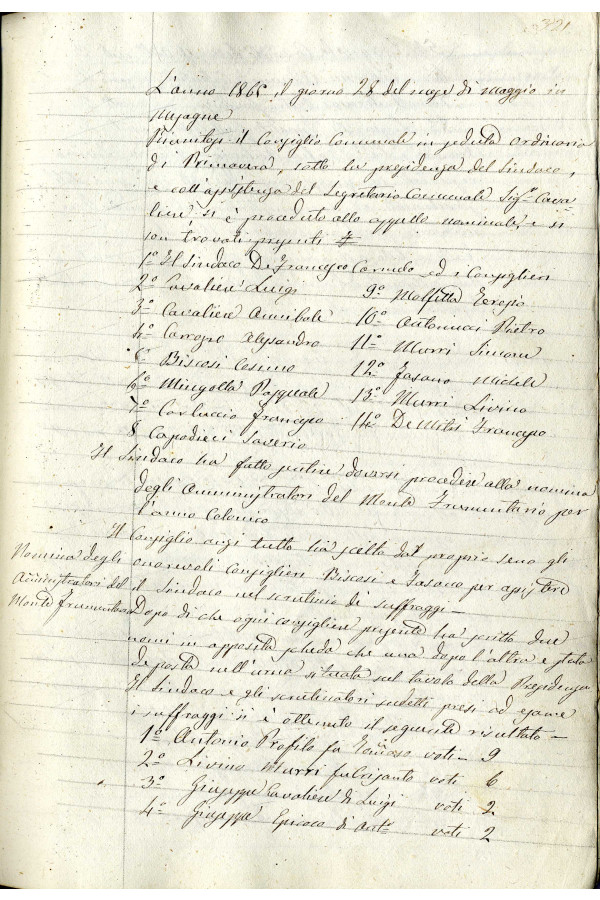 321
L'anno 1865 il giorno 28 del mese di Maggio in
Mesagne
Riunitosi il Consiglio Comunale in seduta ordinaria
di Primavera, sotto la presidenza del Sindaco,
e coll'assistenza del Segretario Comunale Sig.r Cava
liere, si è proceduto allo appello nominale, e si
son trovati presenti
1° Il Sindaco De Francesco Cornelio ed i Consiglieri
2° Cavaliere Luigi
9° Molfetta Terezio
3° Cavaliere Annibale
10° Antonucci Pietro
4° Carrozzo Alessandro
11° Murri Simone
5° Biscosi Cosimo
12° Fasano Michele
6° Mingolla Pasquale
13° Murri Livino
7° Carluccio Francesco
14° De Mitri Francesco
8 Capodieci Saverio
Il Sindaco ha fatto sentire doversi procedere alla nomina
degli Amministratori del Monte Frumentario per
l'anno Colonico
Il Consiglio anzi tutto ha scelto dal proprio seno gli
onorevoli Consiglieri Biscosi e Fasano per assistere
il Sindaco nel scrutinio di suffraggi —
Nomina degli
Amministratori del
Monte Frumentario
Dopo di che ogni consigliere presente ha scritto due
nomi in apposita scheda che una dopo l'altra è stata
deposta nell'urna situata sul tavolo della Presidenza
Il Sindaco e gli scrutinatori sudetti presi ad esame
i suffraggi si è ottenuto il seguente risultato —
1° Antonio Profilo fu Tommaso voti — 9
2° Livino Murri fu Crisanto voti 6
3° Giuseppe Cavaliere di Luigi voti 2
4° Giuseppe Epicoco di Ant° voti 2